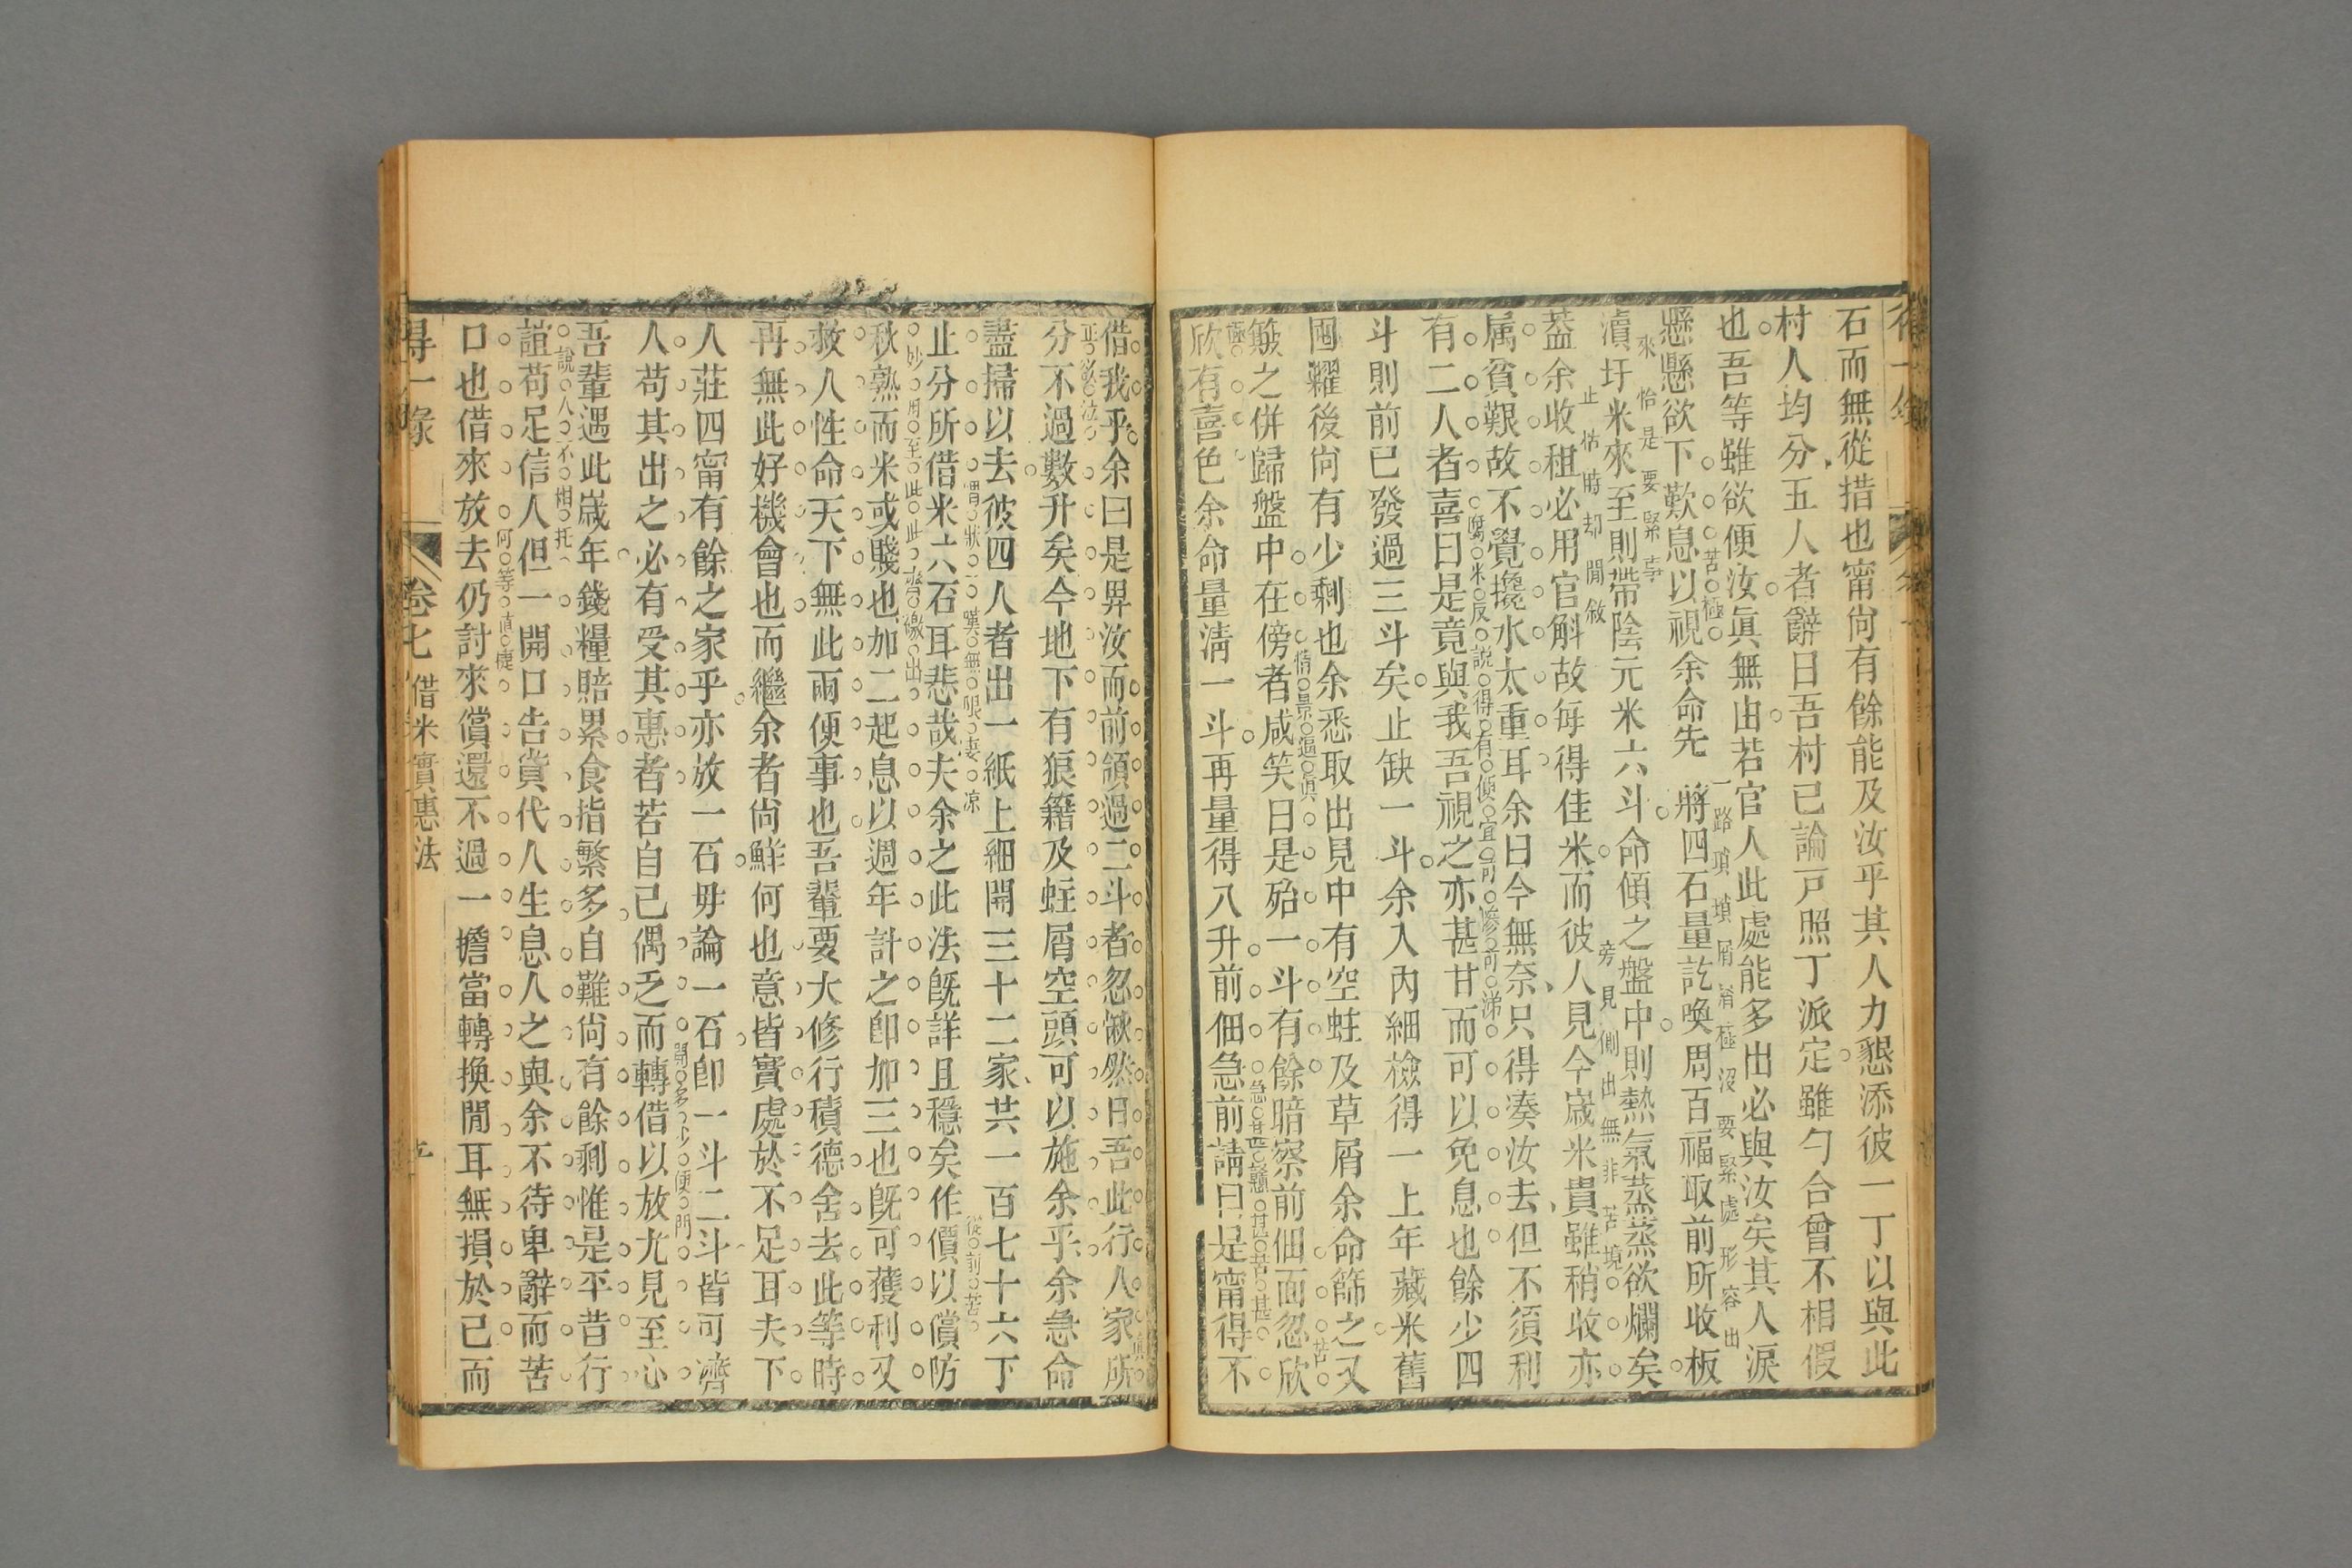 石而無從措也甯尚有餘能及汝乎其人力懇添彼一丁以與此
村人均分五人者辭曰吾村已論戸照丁派定雖勺合曾不相假
也吾等雖欲便汝眞無由若官人此處能多出必與汝矣其人淚
一路瑣瑣屑屑極没要緊處形容出
苦極
懸懸欲下歎息以視余命先將四石量訖喚周百福取前所收板
來恰是要緊事
瀆圩米來至則帶陰元米六斗命傾之盤中則熱氣蒸蒸欲爛矣
止帖時却閒敘
旁見側出無非苦境
葢余收租必用官斛故毎得佳米而彼人見今嵗米貴雖稍收亦
属貧艱故不覺攙水太重耳余曰今無奈只得凑汝去但不須利
腐米反說得有便宜可慘可涕
有二人者喜曰是竟與我吾視之亦甚甘而可以免息也餘少四
斗則前已發過三斗矣止缺一斗余入內細檢得一上年藏米舊
囤糶後尙有少剩也余悉取出見中有空蛀及草屑余命篩之又
情景逼眞
苦
簸之併歸盤中在傍者咸笑曰是殆一斗有餘暗察前佃面忽欣
極
急甚懸甚苦甚
欣有喜色余命量淸一斗再量得八升前佃急前請曰是甯得不
借我乎余曰是畀汝而前領過二斗者忽愀然曰吾此行八家所
眞
正欲泣
分不過數升矣今地下有狼籍及蛀屑空頭可以施余乎余急命
盡掃以去彼四人者出一紙上細開三十二家共一百七十六丁
謂狀一嘆無限凄凉
從前苦
止分所借米六石耳悲哉夫余之此法旣詳且穩矣作價以償防
妙用至此此繳出
秋熟而米或賤也加二起息以週年計之卽加三也旣可獲利又
救人性命天下無此兩便事也吾輩要大修行積德舍去此等時
再無此好機會也而繼余者尙鮮何也意皆實處於不足耳夫下
人莊四甯有餘之家乎亦放一石毋論一石卽一斗二斗皆可濟
開多少便門
人苟其出之必有受其惠者若自己偶乏而轉借以放尤見至心
吾輩遇此嵗年錢糧賠累食指繁多自難尙有餘剩惟是平昔行
說人不相托
誼苟足信人但一開口告貲代人生息人之與余不待卑辭而苦
何等直㨗
口也借來放去仍討來償還不過一擔當轉換閒耳無損於己而
得一錄
卷七
借米實惠法